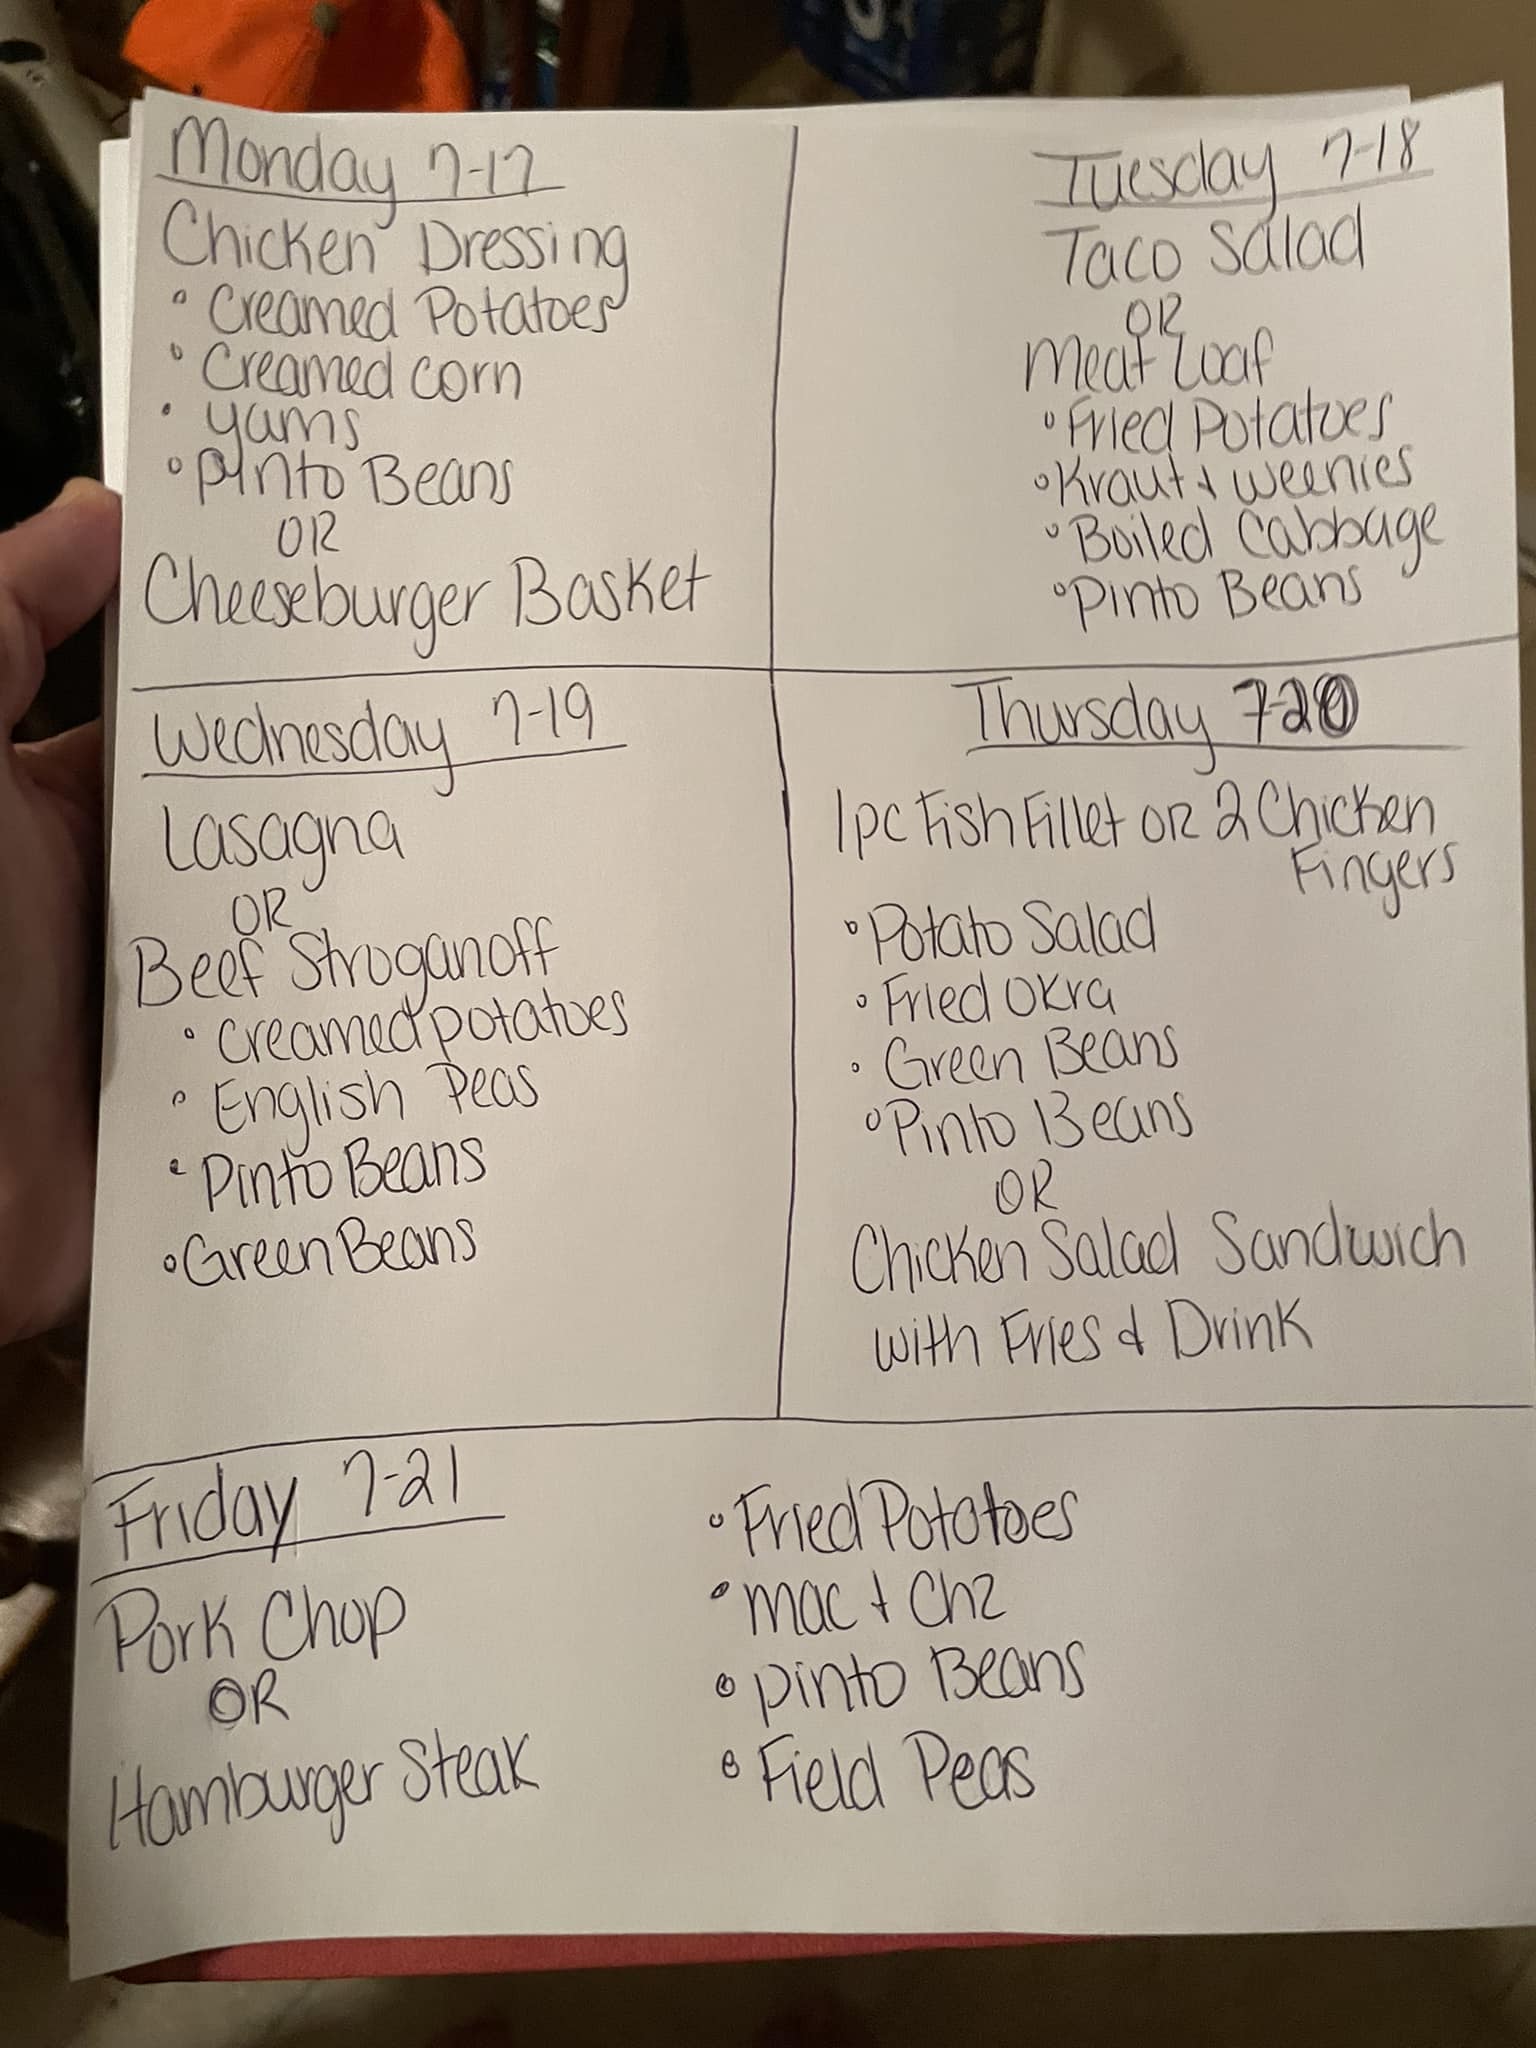 Monday 7-17
Chicken Dressing
• Creamed Potatoes
• Creamed corn
• yams
• Pinto Beans
OR
Cheeseburger Basket
Tuesday 7-18
Taco Salad
OR
Meat Loaf
• Fried Potatoes
• Kraut & weenies
• Boiled Cabbage
• Pinto Beans
Wednesday 7-19
Lasagna
OR
Beef Stroganoff
• Creamed potatoes
• English Peas
• Pinto Beans
• Green Beans
Thursday 7-20
1pc Fish Fillet OR 2 Chicken
Fingers
• Potato Salad
• Fried Okra
• Green Beans
• Pinto Beans
OR
Chicken Salad Sandwich
with Fries & Drink
Friday 7-21
Pork Chop
OR
Hamburger Steak
• Fried Potatoes
• Mac & Chz
• Pinto Beans
• Field Peas